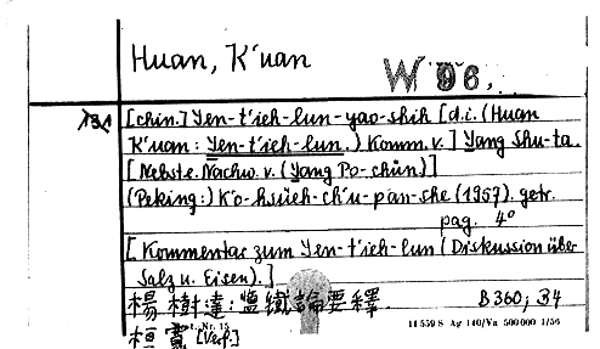 Huan, K'uan
W 96.
131
[chin.] Yen-t'ieh-lun-yao-shih [d.i. (Huan
K'uan: Yen-t'ieh-lun.) Komm. v.] Yang Shu-ta.
[Nebst e. Nachw. v. (Yang Po-chün)]
(Peking:) K'o-hsüeh-ch'u-pan-she (1957). getr.
pag. 4°
[Kommentar zum Yen-t'ieh-lun (Diskussion über
Salz u. Eisen).]
楊樹達: 鹽鐵論要釋. B360; 34
桓寬 [Verf.]
11 559 S Ag 140/Va 500 000 1/56